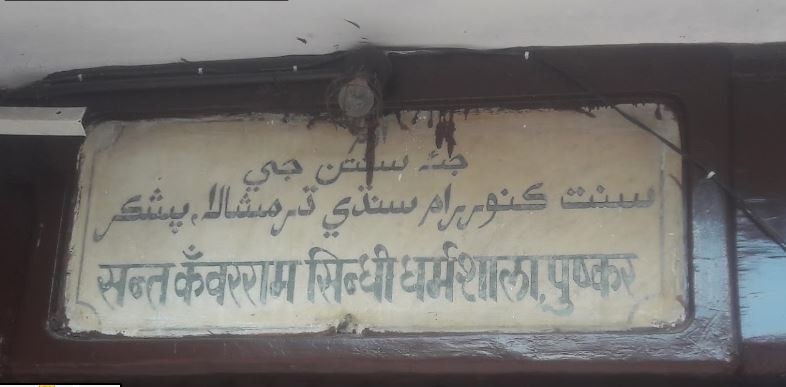 جئہ سنتن جي
سنت ڪنوررام سنڌي ڌرمشالا، پشڪر
सन्त कँवरराम सिन्धी धर्मशाला, पुष्कर